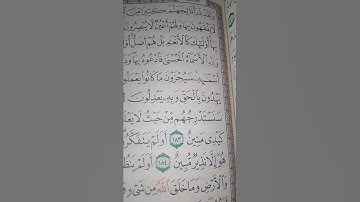 وَلَقَدْ ذَرَأْنَا لِجَهَنَّمَ كَثِيرًا مِّنَ
لَّا يَفْقَهُونَ بِهَا وَلَهُمْ أَعْيُنٌ لَّا يُبْصِرُونَ
بِهَا أُوْلَٰٓئِكَ كَٱلْأَنْعَٰمِ بَلْ هُمْ أَضَلُّ
وَلِلَّهِ ٱلْأَسْمَآءُ ٱلْحُسْنَىٰ فَٱدْعُوهُ بِهَا
أَسْمَٰٓئِهِۦ سَيُجْزَوْنَ مَا كَانُوا۟ يَعْمَلُو
يَهْدُونَ بِٱلْحَقِّ وَبِهِۦ يَعْدِلُونَ
سَنَسْتَدْرِجُهُم مِّنْ حَيْثُ لَا يَعْلَ
كَيْدِى مَتِينٌ ١٨٣ أَوَلَمْ يَتَفَكَّرُ
هُوَ إِلَّا نَذِيرٌ مُّبِينٌ ١٨٤ أَوَلَمْ يَنظُ
وَٱلْأَرْضِ وَمَا خَلَقَ ٱللَّهُ مِن شَىْءٍ وَ